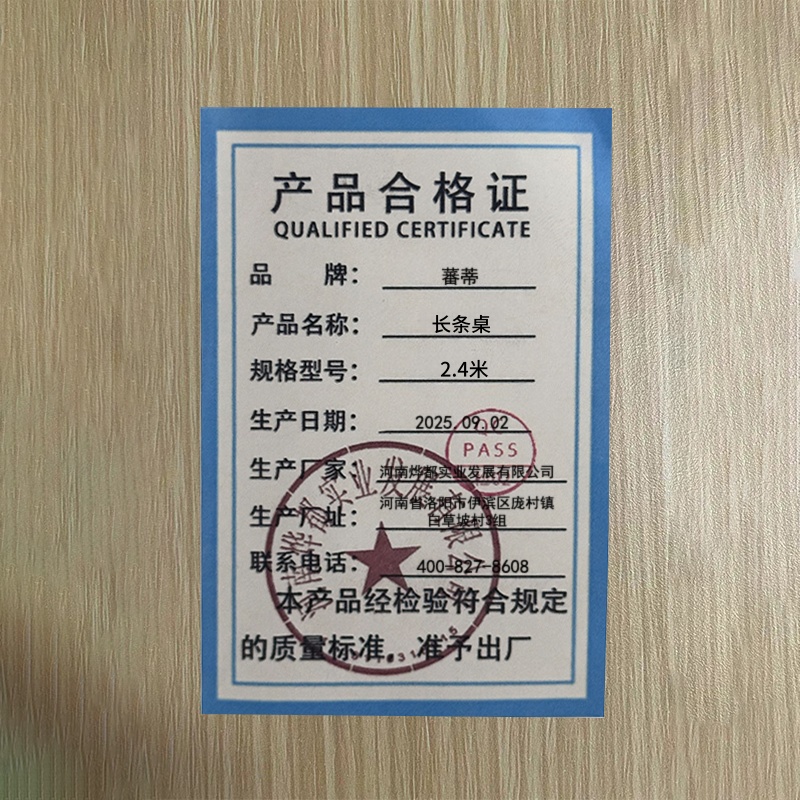 产品合格证
QUALIFIED CERTIFICATE
品 牌： 蕃蒂
产品名称： 长条桌
规格型号： 2.4米
生产日期： 2025.09.02
PASS
生产厂家： 河南烨都实业发展有限公司
生产厂址： 河南省洛阳市伊滨区庞村镇
白草坡村3组
联系电话： 400-827-8608
本产品经检验符合规定
的质量标准。准予出厂
河南烨都实业发展有限公司